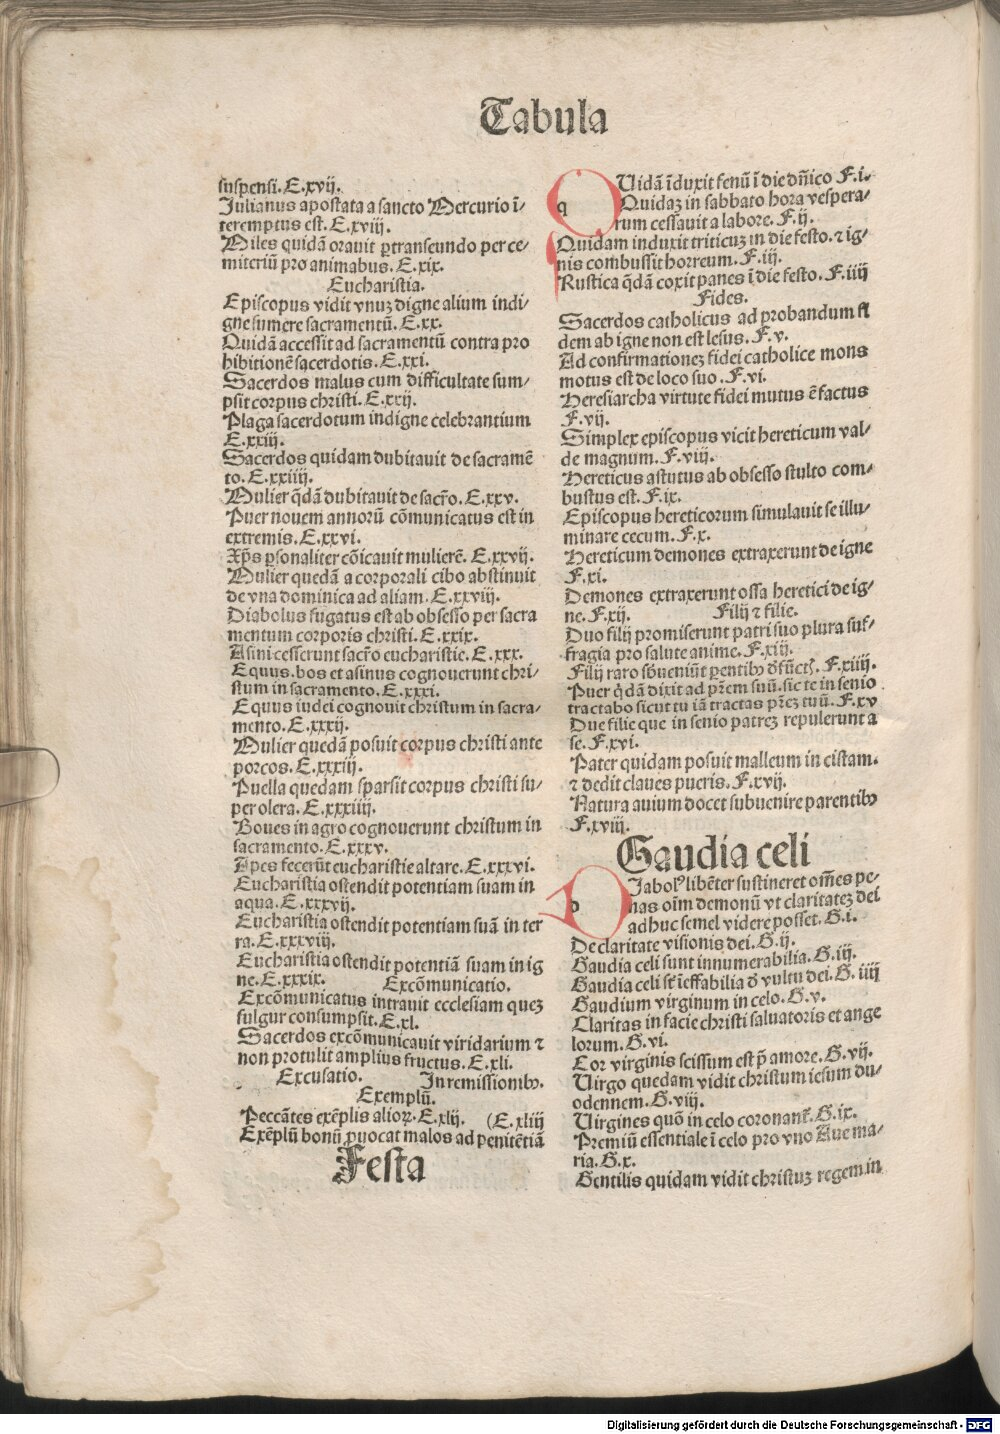 Tabula
suspensi. E.xvij.
Julianus apostata a sancto Mercurio ī-
teremptus est. E.xviij.
Miles quidā orauit ꝑtranseundo per ce-
miteriū pro animabus. E.xix.
Eucharistia.
Episcopus vidit vnuz digne alium indi-
gne sumere sacramentū. E.xx.
Quidā accessit ad sacramentū contra pro
hibitionē sacerdotis. E.xxi.
Sacerdos malus cum difficultate sum-
psit corpus christi. E.xxij.
Plaga sacerdotum indigne celebrantium
E.xxiij.
Sacerdos quidam dubitauit de sacramē
to. E.xxiiij.
Mulier q̄dā dubitauit de sacr̄o. E.xxv.
Puer nouem annorū cōmunicatus est in
extremis. E.xxvi.
Xp̄s ꝑsonaliter cōicauit mulierē. E.xxvij.
Mulier quedā a corporali cibo abstinuit
de vna dominica ad aliam. E.xxviij.
Diabolus fugatus est ab obsesso per sacra
mentum corporis christi. E.xxix.
Asini cesserunt sacr̄o eucharistie. E.xxx.
Equus. bos et asinus cognouerunt chri-
stum in sacramento. E.xxxi.
Equus iudei cognouit christum in sacra-
mento. E.xxxij.
Mulier quedā posuit corpus christi ante
porcos. E.xxxiij.
Puella quedam sparsit corpus christi su-
per olera. E.xxxiiij.
Boues in agro cognouerunt christum in
sacramento. E.xxxv.
Apes fecerūt eucharistie altare. E.xxxvi.
Eucharistia ostendit potentiam suam in
aqua. E.xxxvij.
Eucharistia ostendit potentiam suā in ter
ra. E.xxxviij.
Eucharistia ostendit potentiā suam in ig
ne. E.xxxix. Excōmunicatio.
Excōmunicatus intrauit ecclesiam quez
fulgur consumpsit. E.xl.
Sacerdos excōmunicauit viridarium ⁊
non protulit amplius fructus. E.xli.
Excusatio. In remissionibꝰ.
Exemplū.
Peccātes exēplis alioꝝ. E.xlij. (E.xliij
Exēplū bonū ꝓuocat malos ad penitētiā
Festa
q
QUidā īduxit fenū ī die dn̄ico F.i.
Quidaz in sabbato hora vespera-
rum cessauit a labore. F.ij.
Quidam induxit triticuz in die festo. ⁊ ig-
nis combussit horreum. F.iij.
Rustica q̄dā coxit panes ī die festo. F.iiij
Fides.
Sacerdos catholicus ad probandum fi
dem ab igne non est lesus. F.v.
Ad confirmationez fidei catholice mons
motus est de loco suo. F.vi.
Heresiarcha virtute fidei mutus ē factus
F.vij.
Simplex episcopus vicit hereticum val-
de magnum. F.viij.
Hereticus astutus ab obsesso stulto com-
bustus est. F.ix.
Episcopus hereticorum simulauit se illu-
minare cecum. F.x.
Hereticum demones extraxerunt de igne
F.xi.
Demones extraxerunt ossa heretici de ig-
ne. F.xij. Filij ⁊ filie.
Duo filij promiserunt patri suo plura suf-
fragia pro salute anime. F.xiij.
Filij raro sb̄ueniūt ꝑentibꝰ dfūctꝭ. F.xiiij.
Puer q̄dā dixit ad pr̄em suū. sic te in senio
tractabo sicut tu iā tractas pr̄ez tuū. F.xv
Due filie que in senio patrez repulerunt a
se. F.xvi.
Pater quidam posuit malleum in cistam.
⁊ dedit claues pueris. F.xvij.
Natura auium docet subuenire parentibꝰ
F.xviij.
Gaudia celi
d
DIabolꝰ libēter sustineret om̄es pe-
nas oīm demonū vt claritatez dei
adhuc semel videre posset. G.i.
De claritate visionis dei. G.ij.
Gaudia celi sunt innumerabilia. G.iij.
Gaudia celi sūt ieffabilia d̄ vultu dei. G.iiij
Gaudium virginum in celo. G.v.
Claritas in facie christi saluatoris et ange
lorum. G.vi.
Cor virginis scissum est p̄ amore. G.vij.
Uirgo quedam vidit christum iesum du-
odennem. G.viij.
Uirgines quō in celo coronant̄. G.ix.
Premiū essentiale ī celo pro vno Aue ma-
ria. G.x.
Gentilis quidam vidit christuz regem in
Digitalisierung gefördert durch die Deutsche Forschungsgemeinschaft - DFG